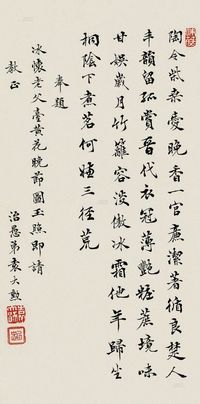 陶令柴桑愛晚香一官廉潔著循良楚人
丰韻留孤賞晉代衣冠薄艷粧蔗境味
甘娛歲月竹籬容淡傲冰霜他年歸坐
桐陰下煮茗何嫌三徑荒
奉題
冰懷老父臺黃花晚節圖玉照即請
教正
治愚弟袁大勲